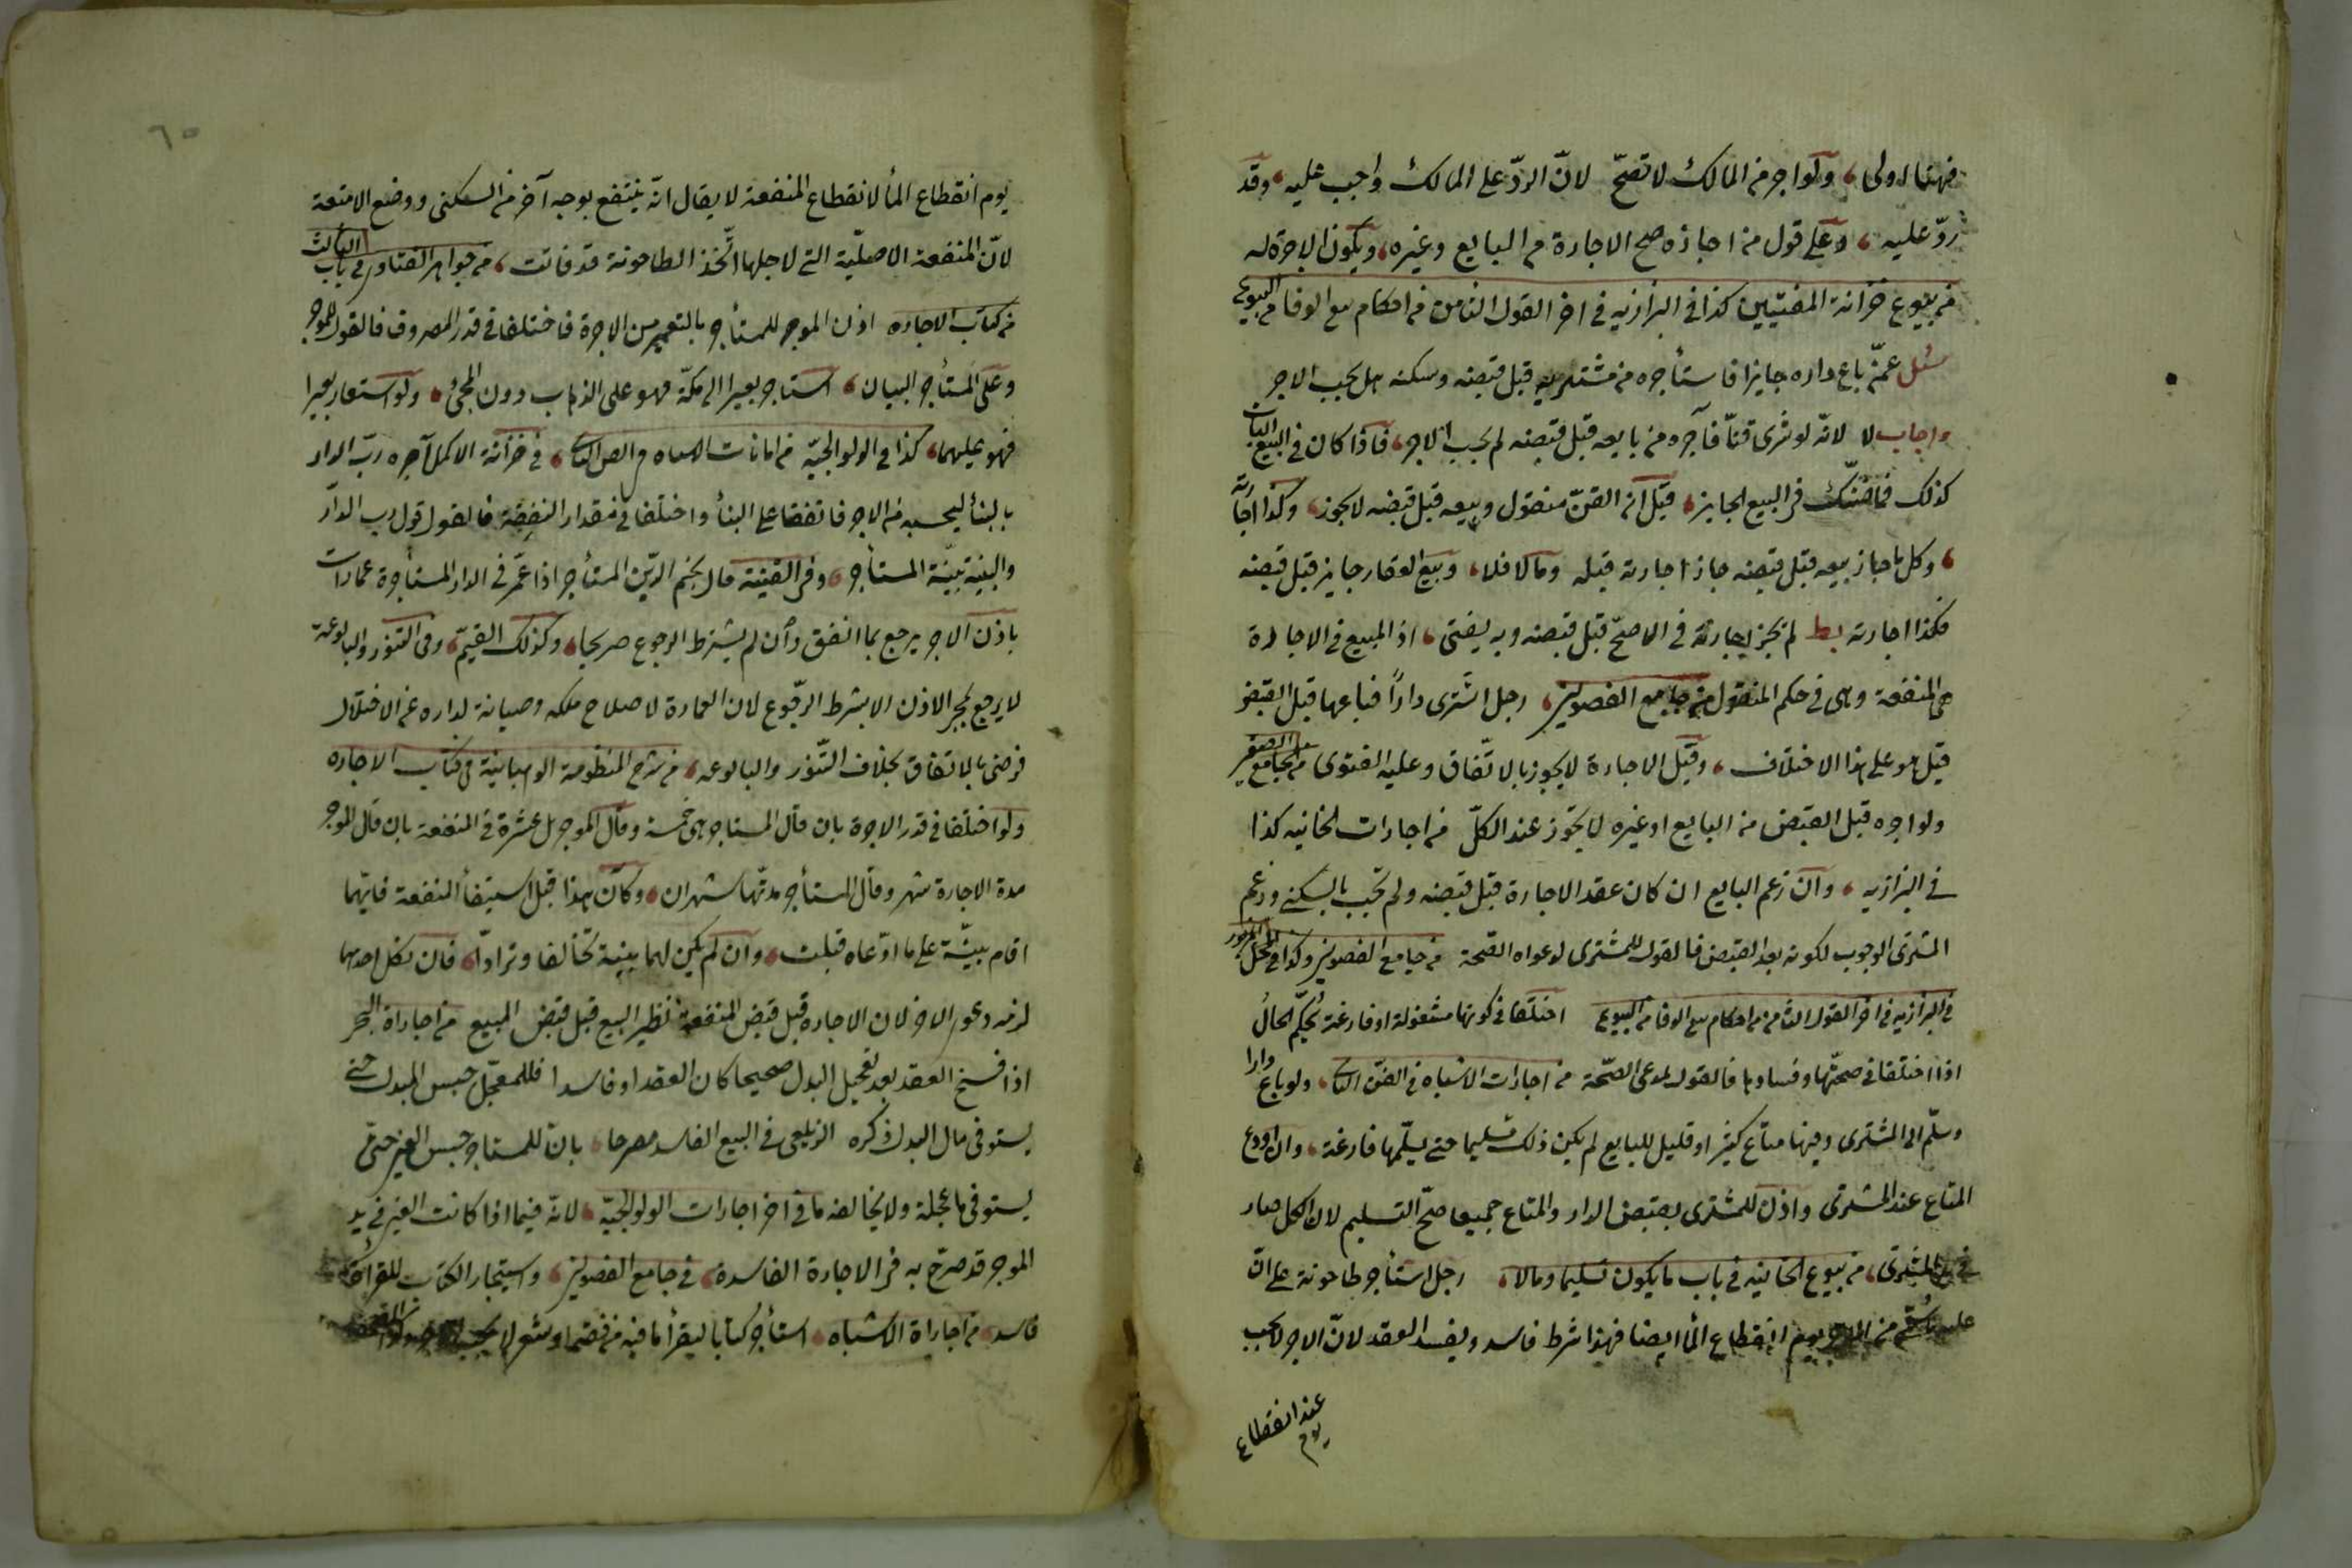 فهنا اولى، ولو اجر من المالك لا تصحّ لانّ الردّ على المالك واجب عليه، وقد
ردّ عليه، وعلى قول من اجازه صح الاجارة من البايع وغيره، ويكون الاجرة له
من بيوع خزانة المفتيين كذا فى البزازيه فى اخر القول الثامن من احكام بيع الوفا من البيوع
سئل عمّن باع داره جايزا فاستأجره من مشتريه قبل قبضه وسكنه هل يجب الاجر
واجاب لا لانّه لو شرى قنّا فآجره من بايعه قبل قبضه لم يجب الاجر، فاذا كان فى البيع البات
كذلك فما ظنّك فى البيع الجايز، قيل ان القنّ منقول وبيعه قبل قبضه لا يجوز، وكذا اجارته
، وكل ما جاز بيعه قبل قبضه جاز اجارته قبله وما لا فلا، وبيع العقار جايز قبل قبضه
فكذا اجارته بط لم تجز اجارته فى الاصحّ قبل قبضه وبه يفتى، اذ المبيع فى الاجارة
هى المنفعة وهى فى حكم المنقول من جامع الفصولين، رجل اشترى دارًا فباعها قبل القبض
قيل هو على هذا الاختلاف، وقيل الاجارة لا يجوز بالاتّفاق وعليه الفتوى من الجامع الصغير
ولو اجره قبل القبض من البايع او غيره لا يجوز عند الكلّ من اجارات الخانيه كذا
فى البزازيه، وان زعم البايع ان كان عقد الاجارة قبل قبضه ولم تجب بالسكنى وزعم
المشترى الوجوب لكونه بعد القبض فالقول للمشترى لدعواه الصحة من جامع الفصولين وكذا فى المحل المزبور
فى البزازيه فى اخر القول الثامن من احكام بيع الوفا من البيوع اختلفا فى كونها مشغولة او فارغة يُحكّم الحالُ
اذا اختلفا فى صحّتها وفسادها فالقول لمدعى الصّحة من اجارات الاشباه فى الفنّ الثانى، ولو باع دارا
وسلّم الى المشترى وفيها متاع كثير او قليل للبايع لم يكن ذلك تسليما حتى يسلّمها فارغة، وان اودع
المتاع عند المشترى واذن للمشترى بقبض الدار والمتاع جميعا صحّ التسليم لان الكل صار
فى يد المشترى، من بيوع الخانيه فى باب ما يكون تسليما وما لا، رجل استأجر طاحونة على انّ
عليه من الاجر يوم انقطاع المأ ايضا فهذا شرط فاسد ويفسد العقد لانّ الاجر لا يجب
عند انقطاع
يوم
٦٥
يوم انقطاع المأ لانقطاع المنفعة لا يقال انّه ينتفع بوجه آخر من السكنى ووضع الامتعة
لانّ المنفعة الاصليّة التى لاجلها اتّخذ الطاحونة قد فاتت، من جواهر الفتاوى فى باب الثالث
من كتاب الاجاره اذن الموجر للمستأجر بالتعمير من الاجرة فاختلفا فى قدر المصروف فالقول للموجر
وعلى المستأجر البيان، استاجر بعيرا الى مكّة فهو على الذهاب دون المجئ، ولو استعار بعيرا
فهو عليهما، كذا فى الولوالجيّة من امانات الاشباه فى الفن الثانى، فى خزانة الاكمل آجره ربّ الدار
بالبنأ ليحسبه من الاجر فاتفقا على البنأ واختلفا فى مقدار النفقة فالقول قول رب الدّار
والبيّنة بيّنة المستأجر، وفى القنية قال نجم الدّين المستأجر اذا عمّر فى الدار المستأجرة عمارات
باذن الاجر يرجع بما انفق وأن لم يشترط الرجوع صريحا، وكذلك القيّم، وفى التنور والبالوعة
لا يرجع بمجرد الاذن الا بشرط الرّجوع لان العمارة لاصلاح ملكه وصيانة لداره عن الاختلال
فرضى بالانفاق بخلاف التّنور والبالوعه، من شرح المنظومة الوهبانيّة فى كتاب الاجاره
ولو اختلفا فى قدر الاجرة بان قال المستاجر هى خمسة وقال الموجر بل عشرة فى المنفعة بان قال الموجر
مدة الاجارة شهر وقال المستأجر مدّتها شهران، وكان هذا قبل استيفأ المنفعة فايّهما
اقام بيّنة على ما ادّعاه قبلت، وان لم يكن لهما بينة تحالفا وترادّا، فان نكل احدهما
لزمه دعوى الاخر لان الاجاره قبل قبض المنفعة نظير البيع قبل قبض المبيع من اجاراة البحر
اذا فسخ العقد بعد تعجيل البدل صحيحا كان العقد او فاسدا فللمعجّل حبس المبدل حتى
يستوفى مال البدل ذكره الزيلعى فى البيع الفاسد مصرحا، بان للمستاجر حبس العين حتى
يستوفى ما عجله ولا يخالفه ما فى اخر اجارات الولوالجيّة، لانّه فيما اذا كانت العين فى يد
الموجر قد صرّح به فى الاجارة الفاسدة، فى جامع الفصولين، واستيجار الكتاب للقراءة
فاسد، من اجاراة الاشباه، استأجر كتابا ليقرأ ما فيه من فقه او شعر لا يجب